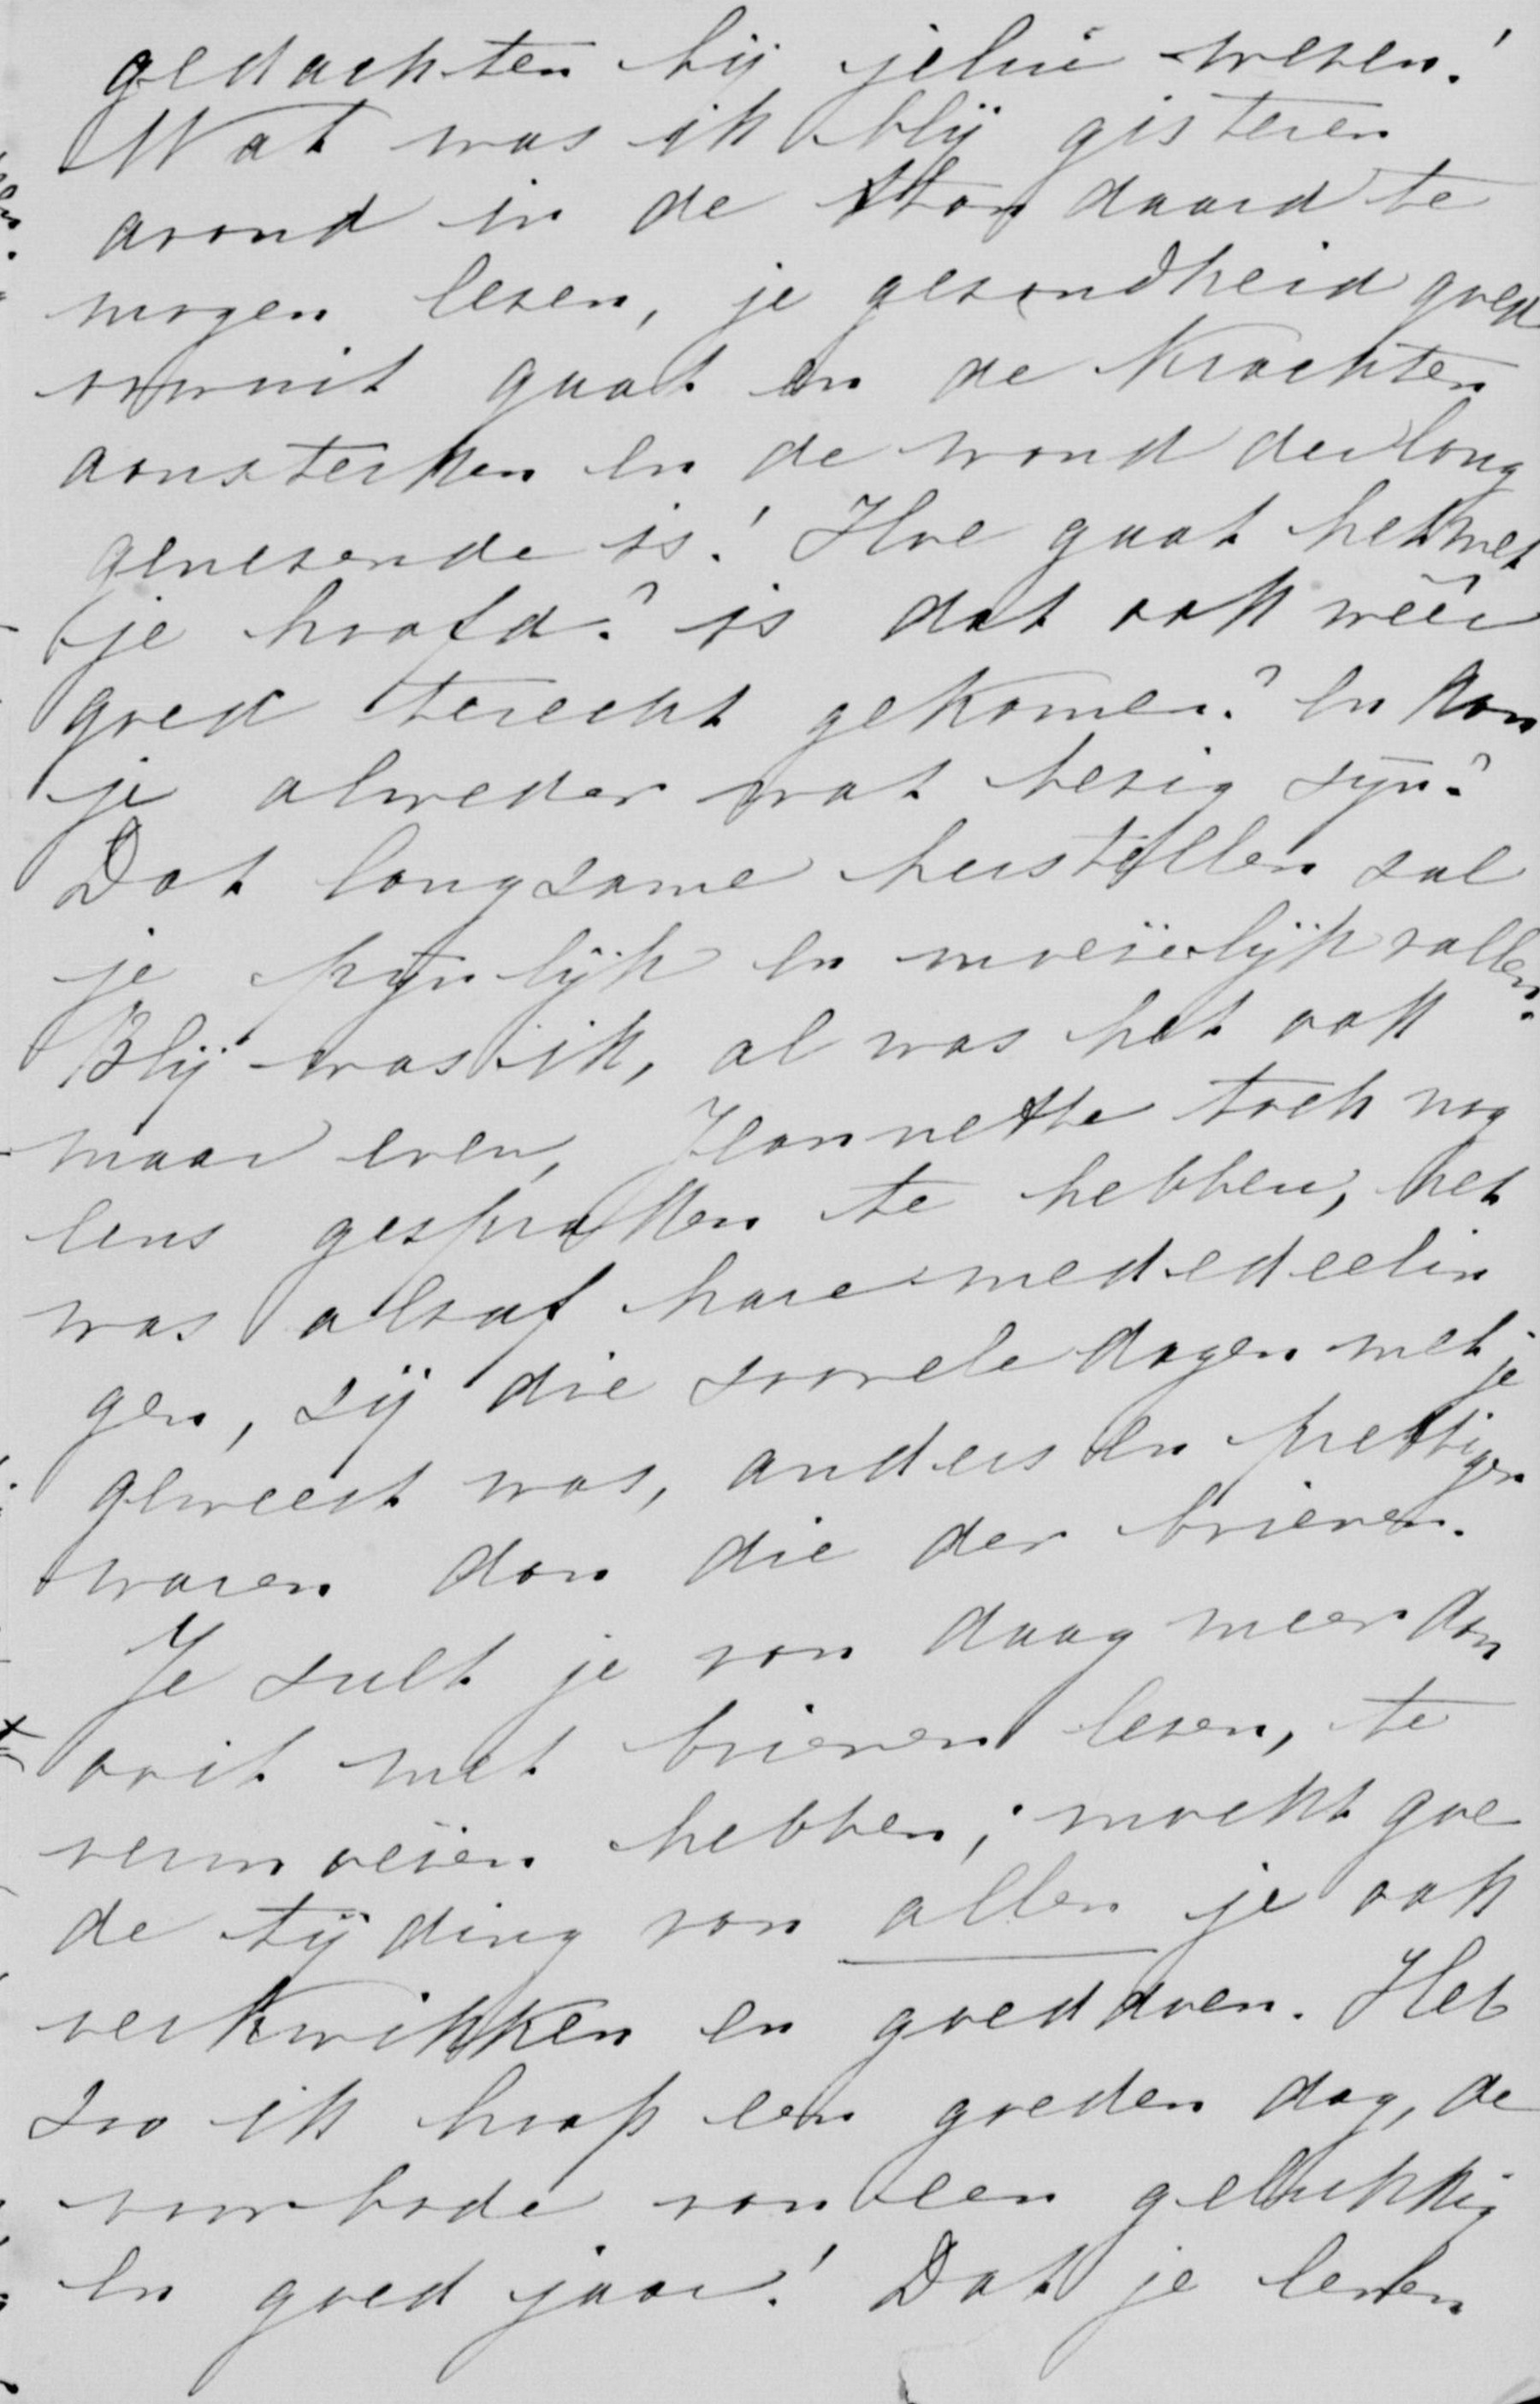 gedachten bij jelui wesen!
Wat was ik blij gisteren
avond in de Standaard te
mogen lesen, je gesondheid goed
vooruit gaat en de Krachten
aansterken en de wond der long
genesende is! Hoe gaat het met
je hoofd? is dat ook wêer
goed terecht gekomen? en kan
je alweder wat besig sijn?
Dat langsame herstellen sal
je pijnlijk en moeielijk vallen.
Blij was ik, al was het ook
maar even, Hannette toch nog
eens gesproken te hebben, het
was alsof hare mededeelin
gen, sij die soovele dagen met je
geweest was, anders en prettiger
waren dan die der brieven.
Je sult je van daag meer dan
ooit met brieven lesen, te
vermoeien hebben; mocht goe
de tijding van allen je ook
verkwikken en goed doen. Het
soo ik hoop een goeden dag, de
voorbode van een gelukkig
en goed jaar! Dat je leven